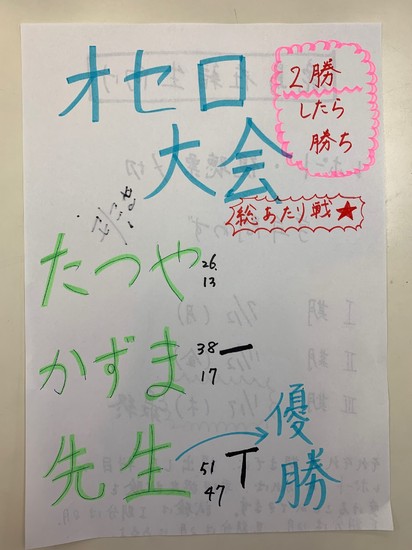 オセロ
大会
2勝
したら
勝ち
総あたり戦★
たつや
26.
13
かずま
38
17
先生
51
47
優
勝